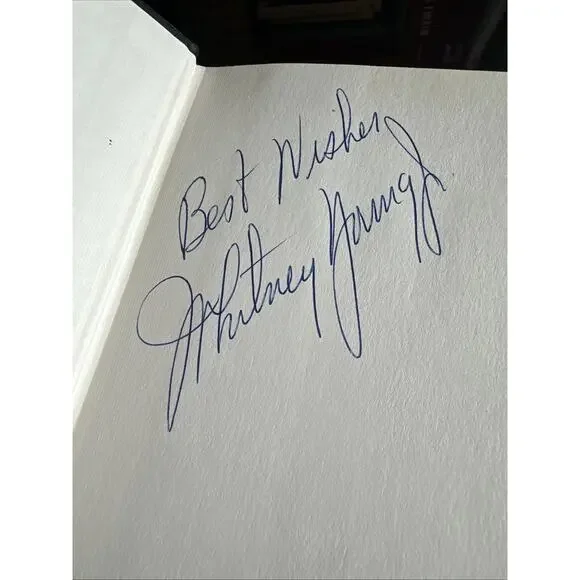 Best Wishes
Whitney Young Jr